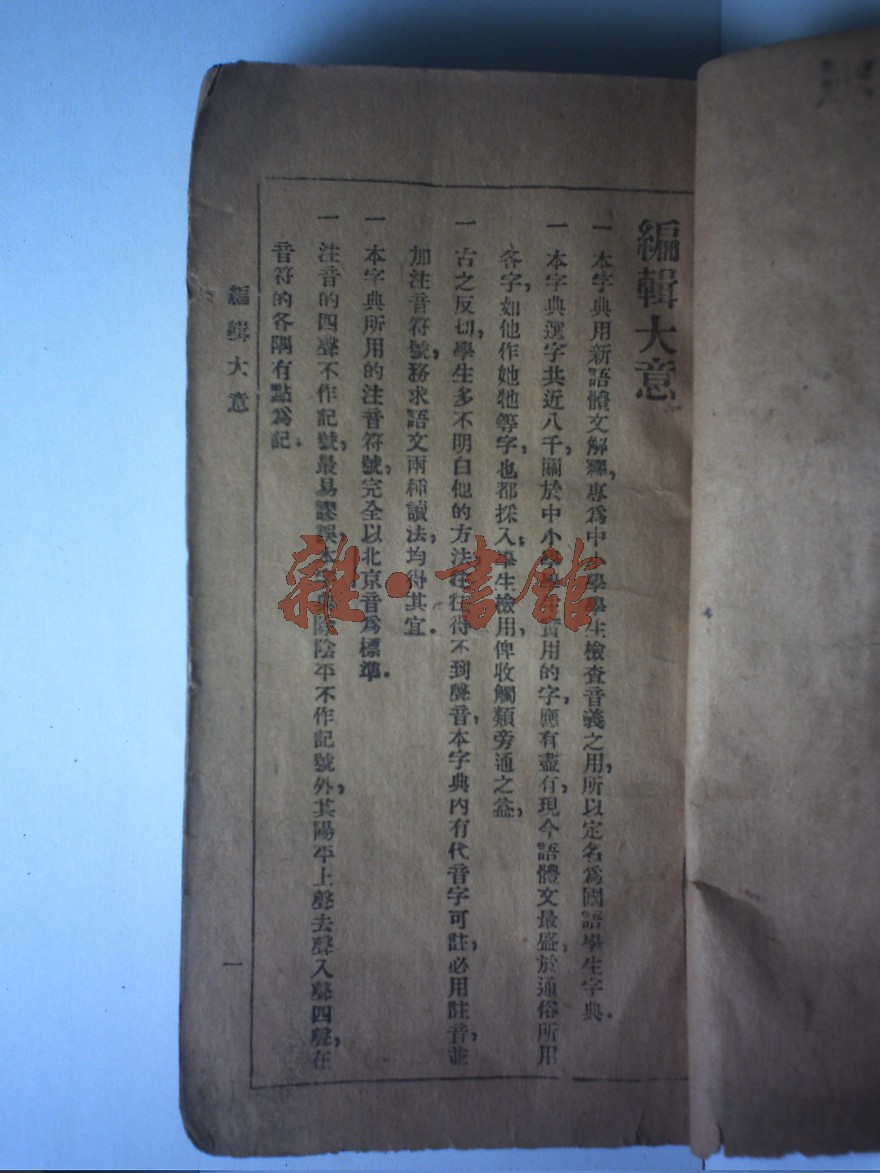 編輯大意
一 本字典用新語體文解釋，專爲中小學學生檢查音義之用，所以定名爲國語學生字典．
一 本字典選字共近八千，關於中小學實用的字，應有盡有，現今語體文最盛，於通俗所用
各字，如他作她牠等字，也都採入，學生檢用俾收觸類旁通之益，
一 古之反切，學生多不明白他的方法，往往得不到聲音，本字典內有代音字可註，必用註音，並
加注音符號，務求語文兩種讀法，均得其宜．
一 本字典所用的注音符號，完全以北京音爲標準．
一 注音的四聲不作記號，最易謬誤，本字典除陰平不作記號外，其陽平上聲去聲入聲四聲，在
音符的各隅有點爲記．
編輯大意
一
雜·書館